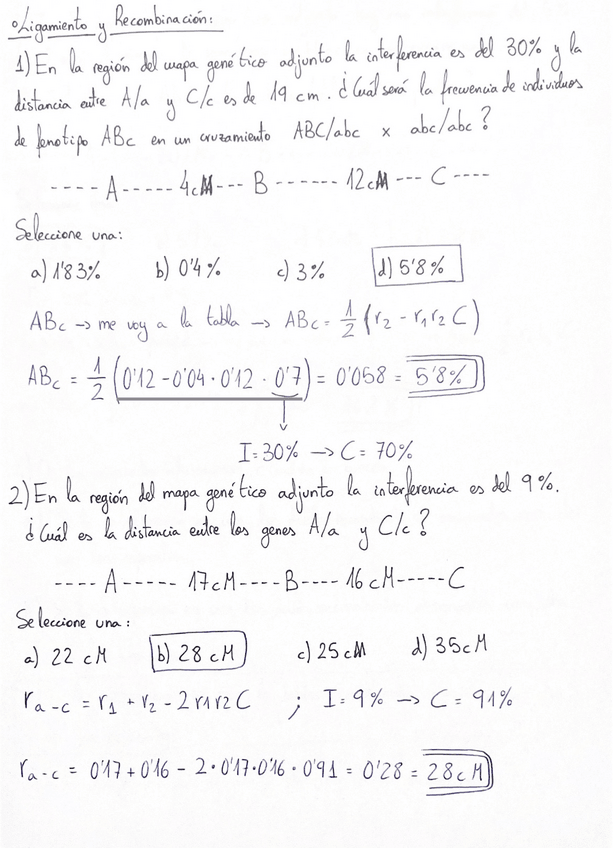 °Ligamiento y Recombinación:
1) En la región del mapa genético adjunto la interferencia es del 30% y la
distancia entre A/a y C/c es de 19 cm. ¿Cuál será la frecuencia de individuos
de fenotipo ABc en un cruzamiento ABC/abc x abc/abc?
---- A ----- 4cM --- B ------- 12cM --- C ----
Seleccione una:
a) 1'83% b) 0'4% c) 3% d) 5'8%
ABc → me voy a la tabla → ABc = 1/2 (r2 - r1 r2 C)
ABc = 1/2 (0'12 - 0'04 · 0'12 · 0'7) = 0'058 = 5'8%
I = 30% → C = 70%
2) En la región del mapa genético adjunto la interferencia es del 9%.
¿Cuál es la distancia entre los genes A/a y C/c?
---- A ----- 17cM ---- B ---- 16cM ----- C
Seleccione una:
a) 22 cM b) 28 cM c) 25 cM d) 35cM
ra-c = r1 + r2 - 2 r1 r2 C ; I = 9% → C = 91%
ra-c = 0'17 + 0'16 - 2 · 0'17 · 0'16 · 0'91 = 0'28 = 28cM